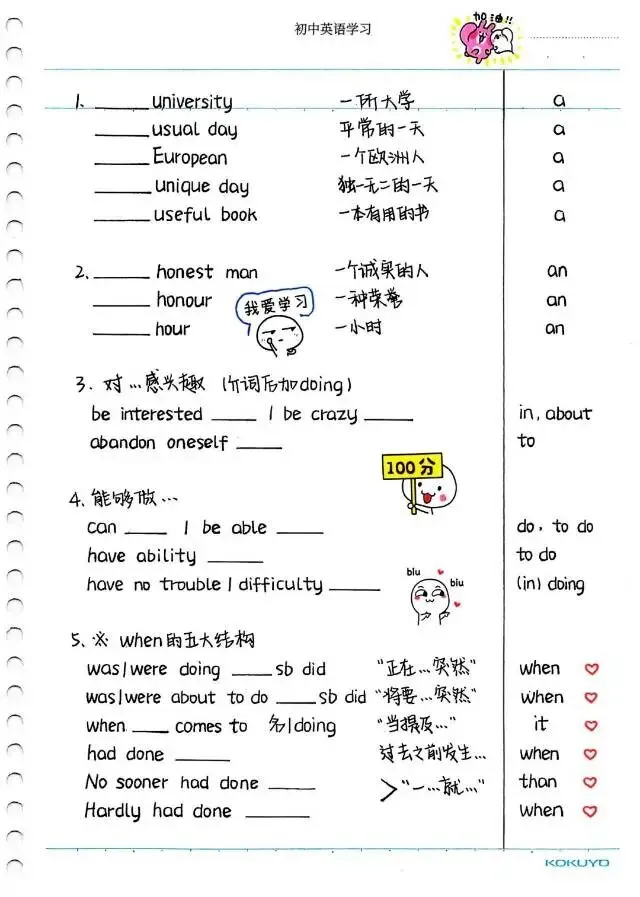 初中英语学习
加油!!
1、 _____ university 一所大学 a
_____ usual day 平常的一天 a
_____ European 一个欧洲人 a
_____ unique day 独一无二的一天 a
_____ useful book 一本有用的书 a
2、 _____ honest man 一个诚实的人 an
_____ honour 一种荣誉 an
我爱学习
_____ hour 一小时 an
3. 对…感兴趣 (介词后加doing)
be interested ____ / be crazy ____ in, about
abandon oneself ____ to
100分
4、能够做…
can ____ / be able ____ do, to do
have ability ____ to do
have no trouble / difficulty ____ (in) doing
biu
biu
5、※ when的五大结构
was/were doing ____ sb did "正在…突然" when
was/were about to do ____ sb did "将要…突然" when
when ____ comes to 名/doing "当提及…" it
had done ____ 过去之前发生… when
No sooner had done ____ >"一…就…" than
Hardly had done ____ when
KOKUYO